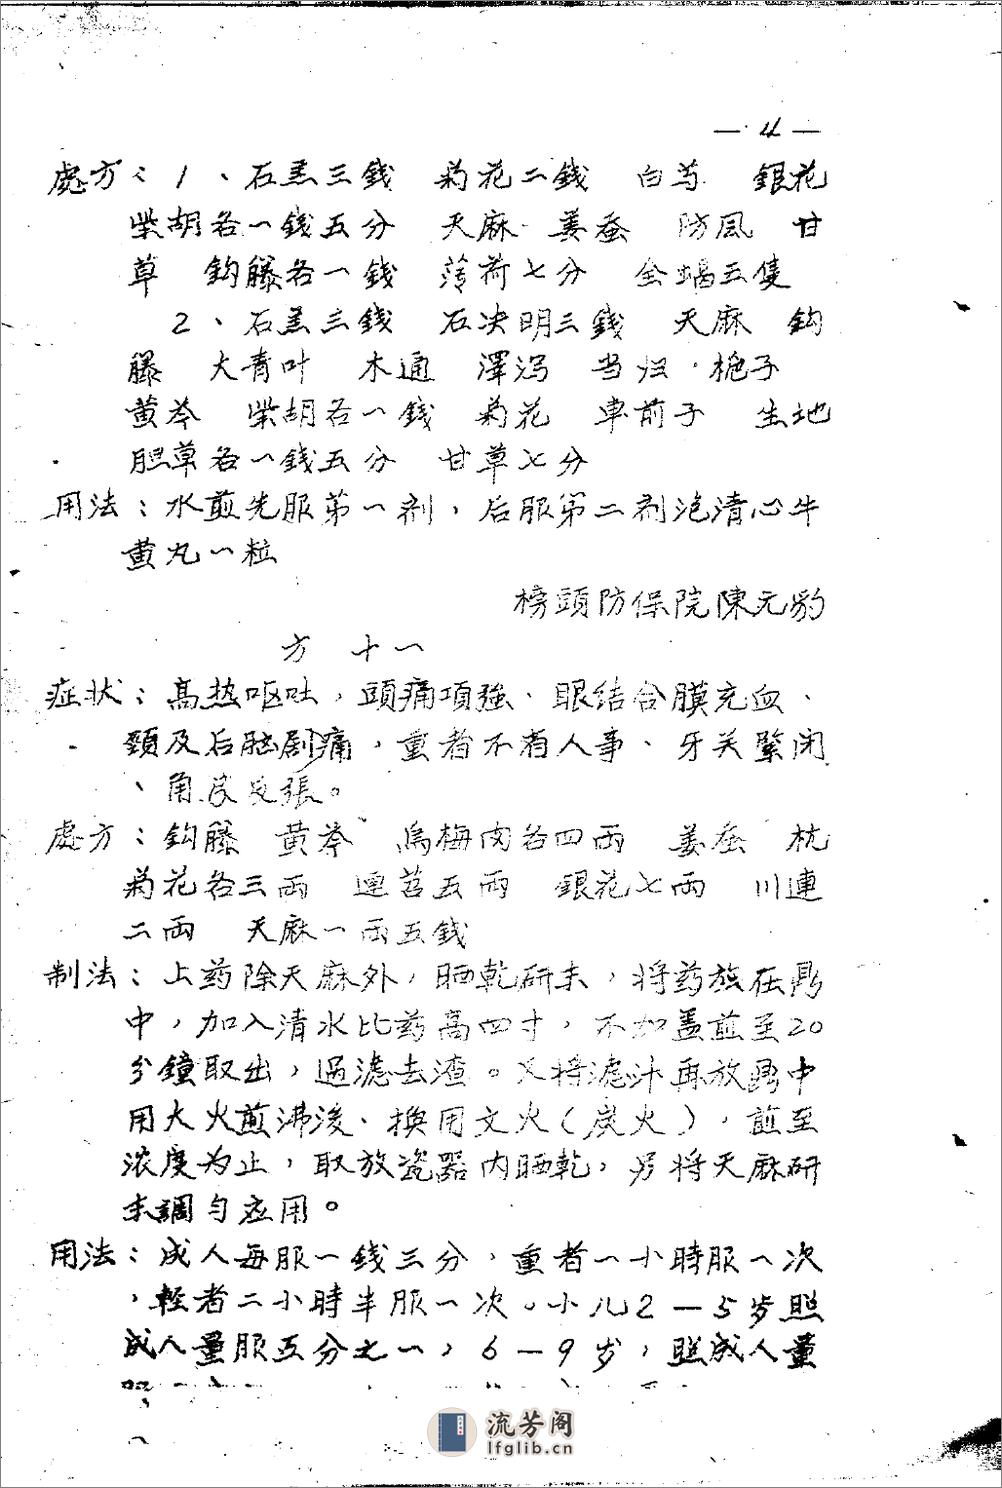 — 4 —
處方：1、石羔三錢　菊花二錢　白芍　銀花
柴胡各一錢五分　天麻　姜蚕　防风　甘
草　鈎藤各一錢　薄荷七分　全蝎五隻
2、石羔三錢　石决明三錢　天麻　鈎
藤　大青叶　木通　澤泻　当归　梔子
黄芩　柴胡各一錢　菊花　車前子　生地
胆草各一錢五分　甘草七分
用法：水煎先服第一剂，后服第二剂泡清心牛
黄丸一粒
榜頭防保院陳元豹
方　十一
症状：高热呕吐，頭痛項強、眼结合膜充血、
頸及后脑剧痛，重者不省人事、牙关緊闭
、角反張。
處方：鈎藤　黄芩　烏梅肉各四兩　姜蚕　杭
菊花各三兩　連苕五兩　銀花七兩　川連
二兩　天麻一兩五錢
制法：上药除天麻外，晒乾研末，将药放在鼎
中，加入清水比药高四寸，不加盖煎至20
分鐘取出，過滤去渣。又将滤汁再放鼎中
用大火煎沸後、換用文火（炭火），煎至
浓度为止，取放瓷器内晒乾，另将天麻研
末調匀应用。
用法：成人每服一錢三分，重者一小時服一次
，輕者二小時半服一次。小儿2—5岁照
成人量服五分之一，6—9岁，照成人量
流芳阁
lfglib.cn